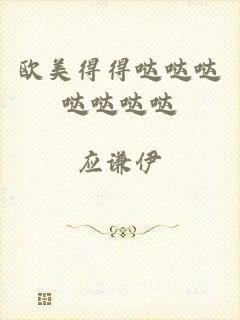 欧美得得哒哒哒
哒哒哒哒
应谦伊